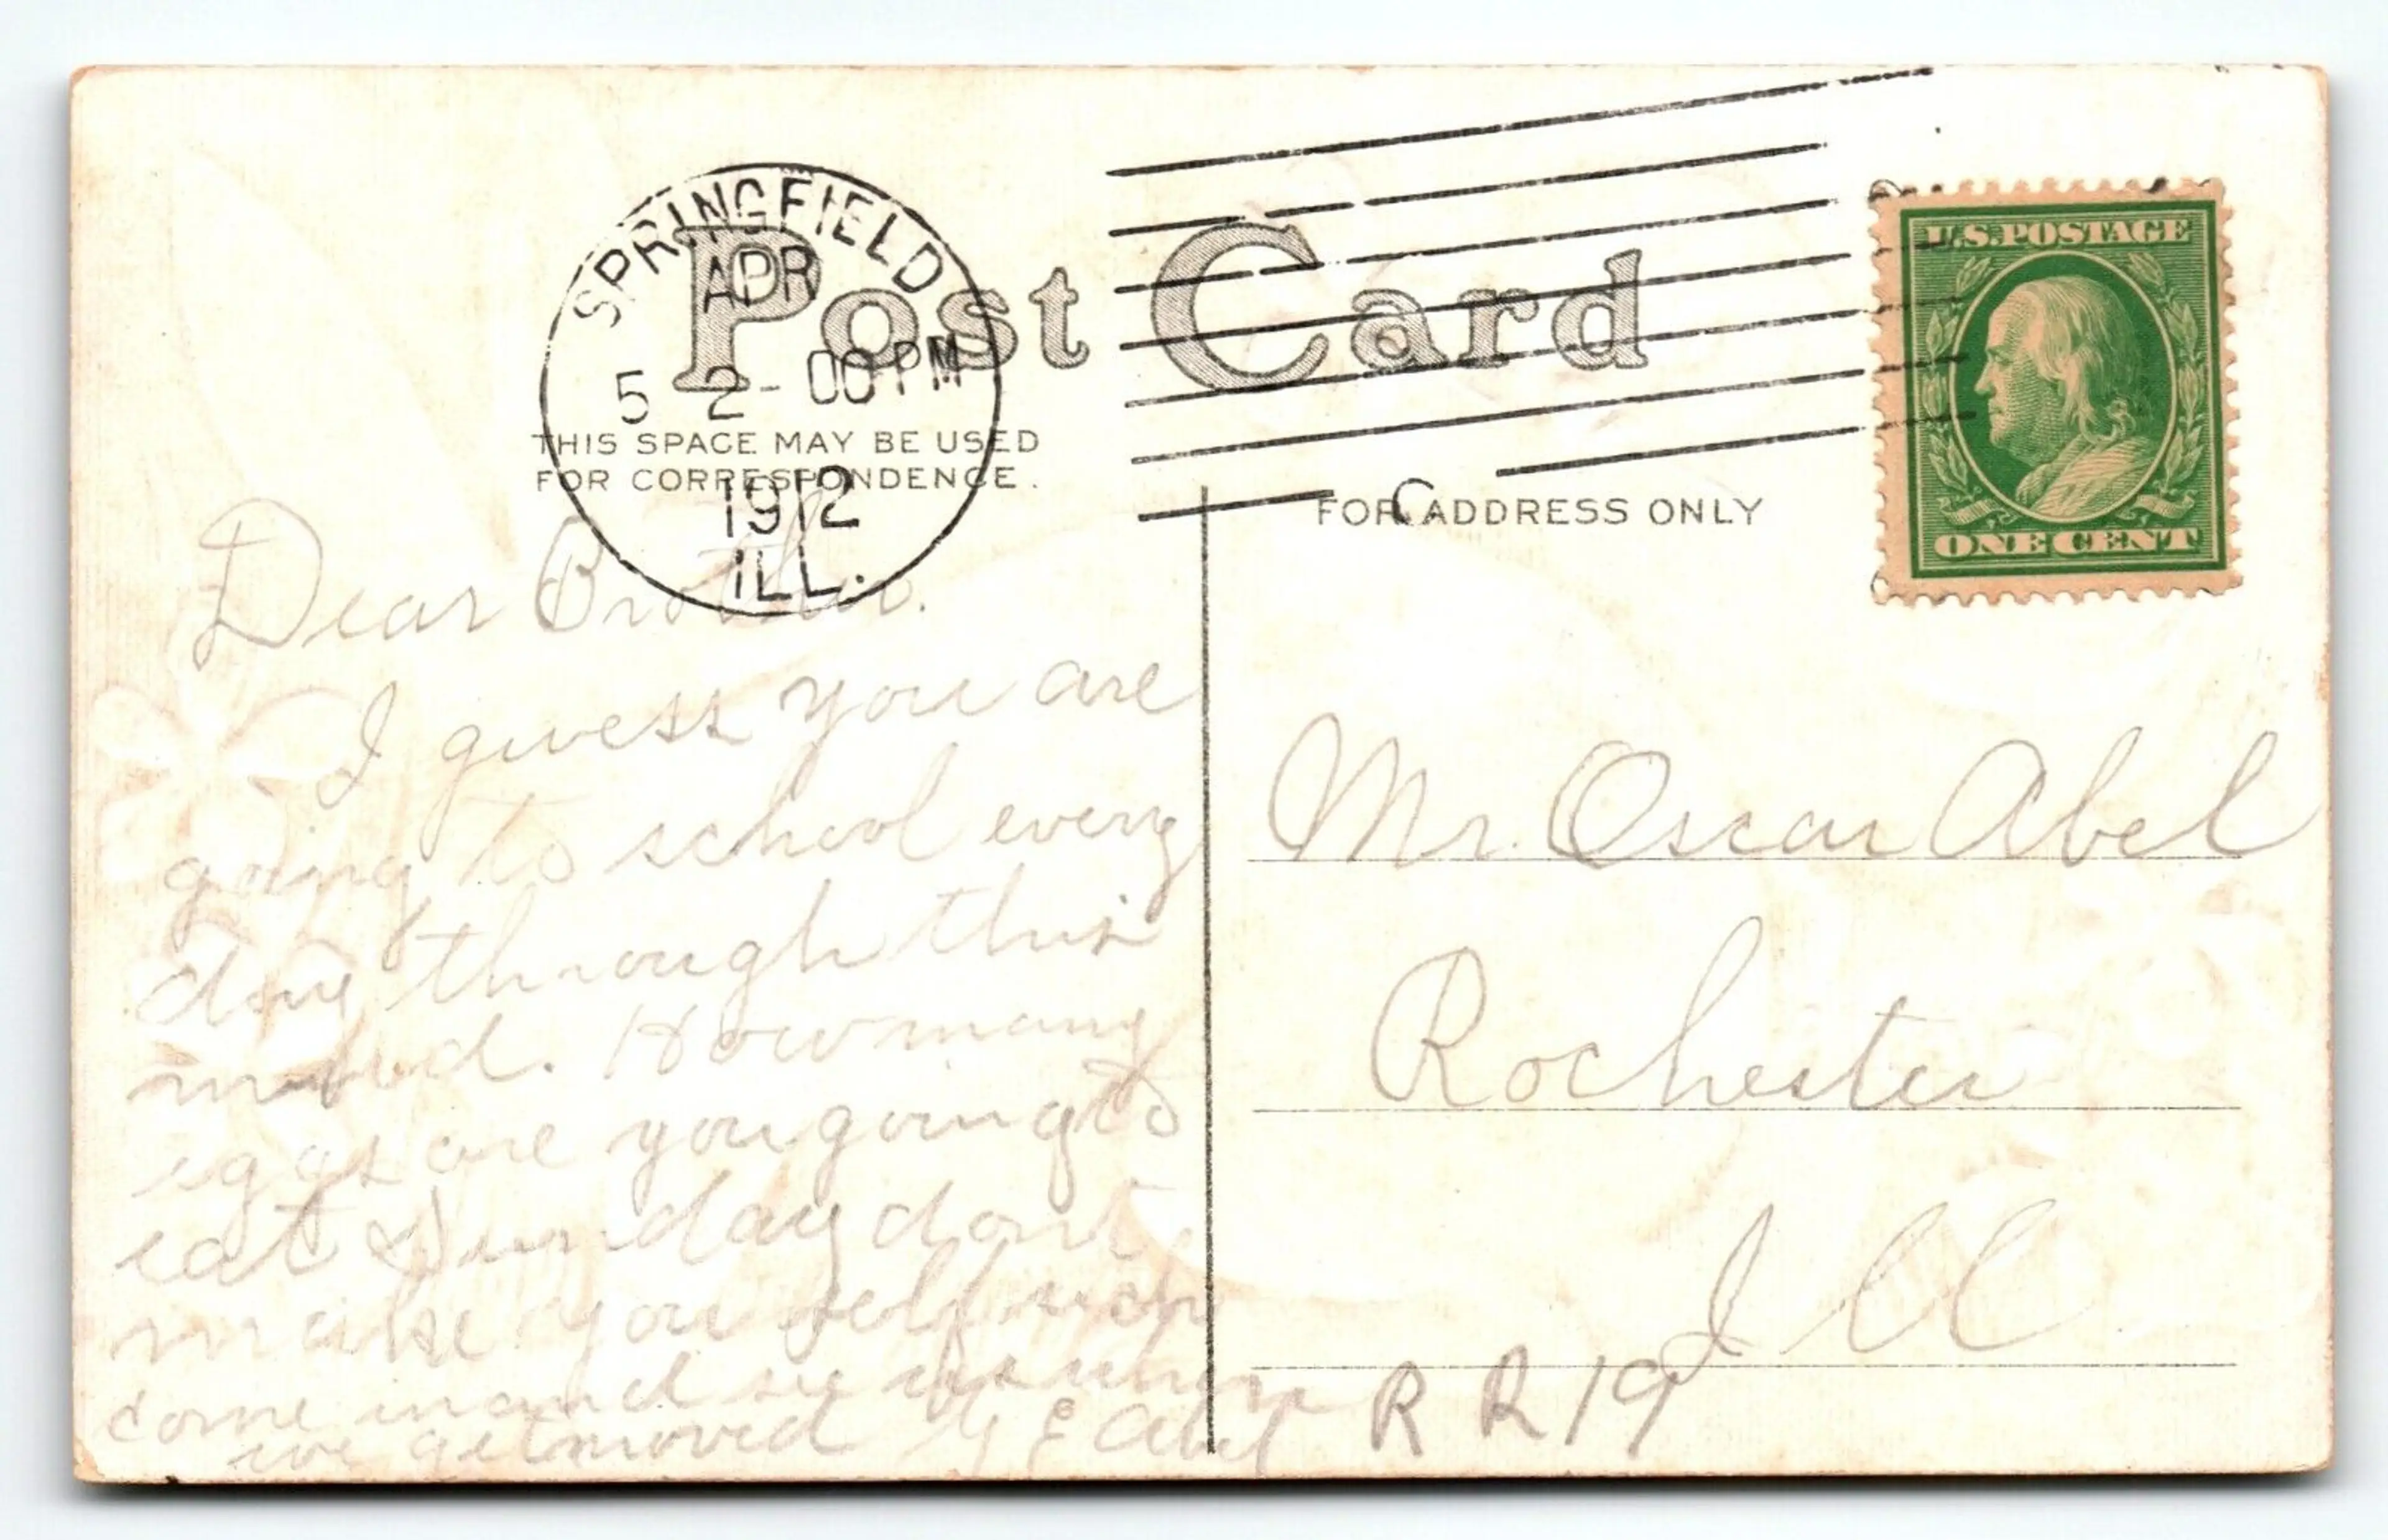 SPRINGFIELD
APR
5 2-00PM
1912
ILL.
Post Card
U.S.POSTAGE
ONE CENT
THIS SPACE MAY BE USED
FOR CORRESPONDENCE.
FOR ADDRESS ONLY
Dear Brother.
I guess you are
going to school every
day through this
mud. How many
eggs are you going to
eat Sunday dont
make you self sick
come in and see us when
we get moved G E Abel
Mr. Oscar Abel
Rochester
Ill
R R 19